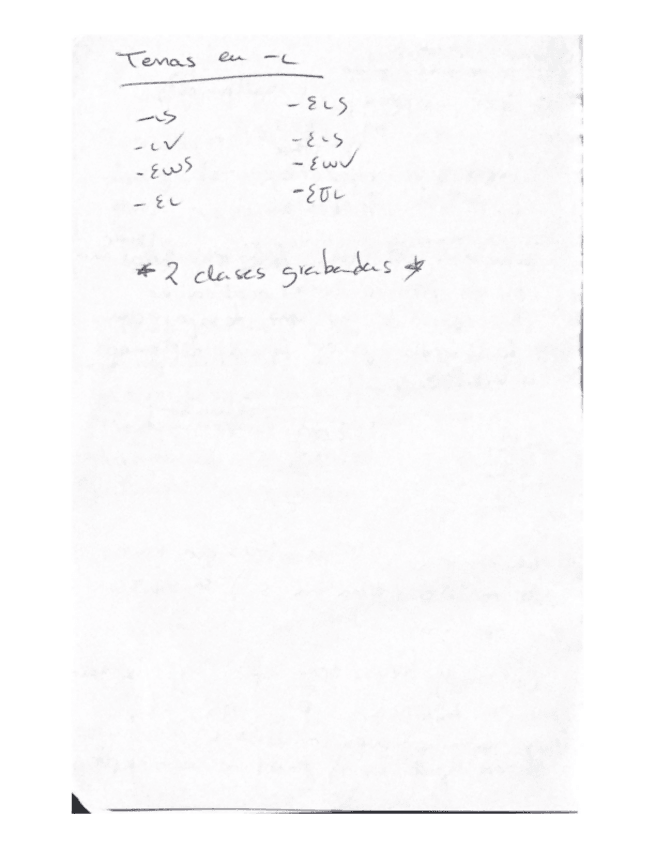 Temas en -ι
-ις -εις
-ιν -εις
-εως -εων
-ει -εσι
* 2 clases grabadas *